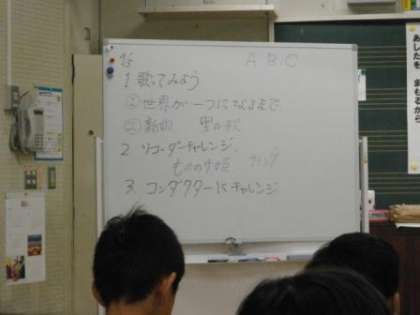 1 歌ってみよう
① 世界が一つになるまで
② 新曲
2. リコーダーチャレンジ
もののけ姫
3. コンダクターにチャレンジ
あしたを まもるから